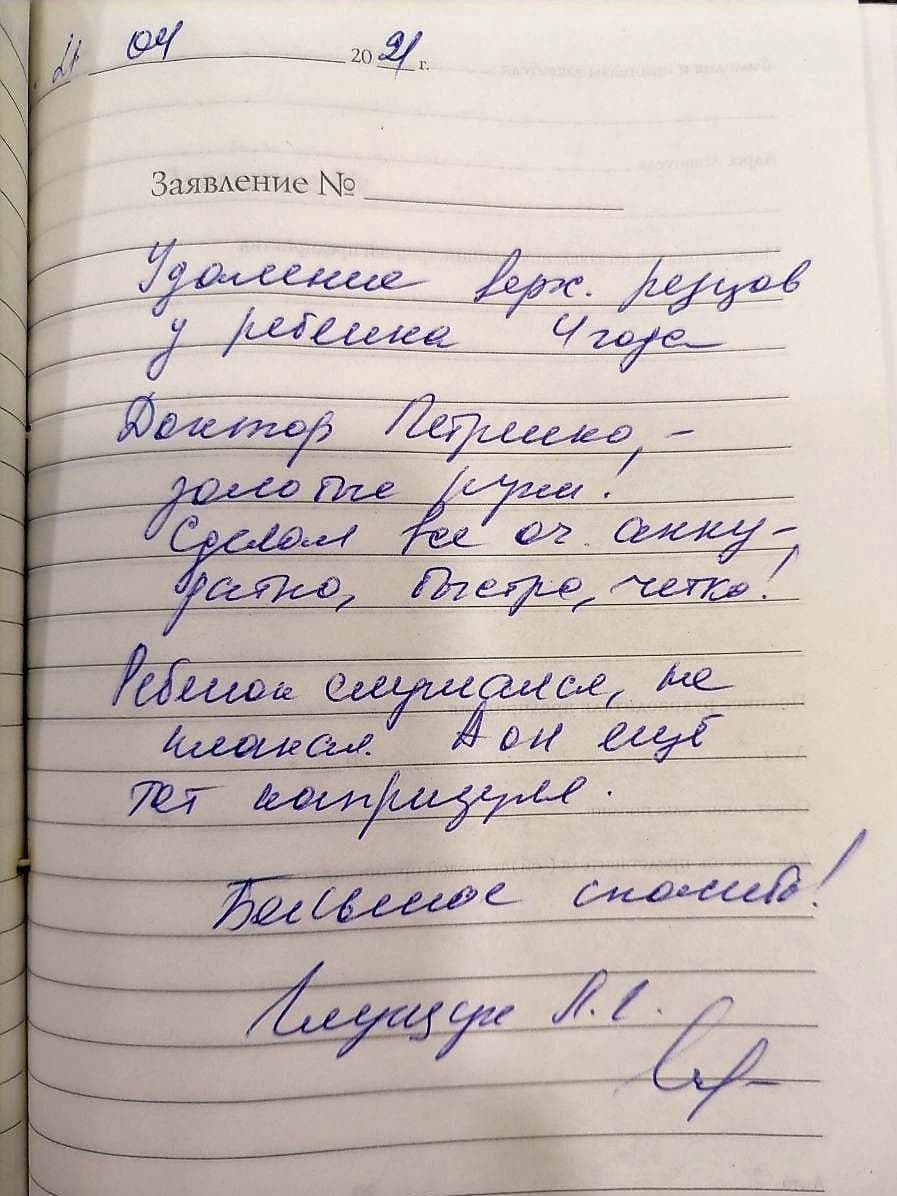 21 04 2021 г.
Заявление №
Удаление верх. резцов
у ребенка 4 года
Доктор Петренко, –
золотые руки!
Сделал все оч. акку-
ратно, быстро, четко!
Ребенок слушался, не
плакал. А он ещё
тот капризуля.
Большое спасибо!